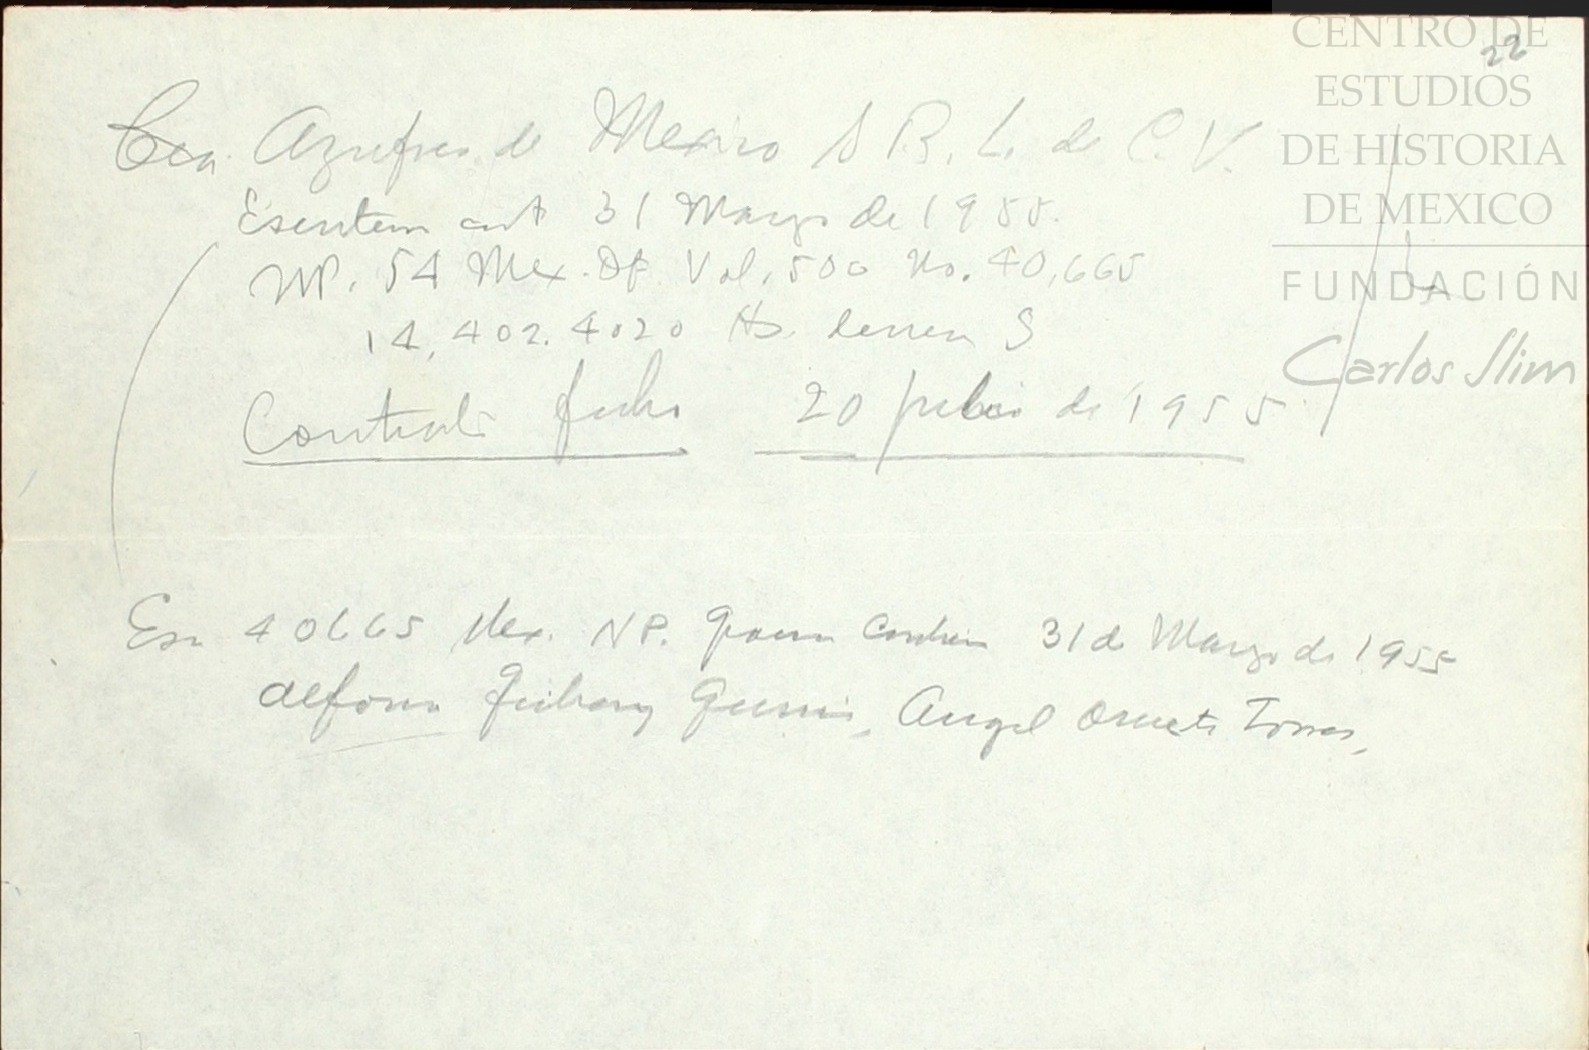 22
Cia. Azufres de Mexico S R. L. de C. V.
Escritura const 31 Marzo de 1955.
NP. 54 Mex. DF. Vol. 500 No. 40,665
14,402.4020 Hs.
Contrato fecha 20 julio de 1955
Esc 40665 Mex. NP. 31 de Marzo de 1955
Alfonso Angel Torres,
CENTRO DE
ESTUDIOS
DE HISTORIA
DE MEXICO
FUNDACIÓN
Carlos Slim